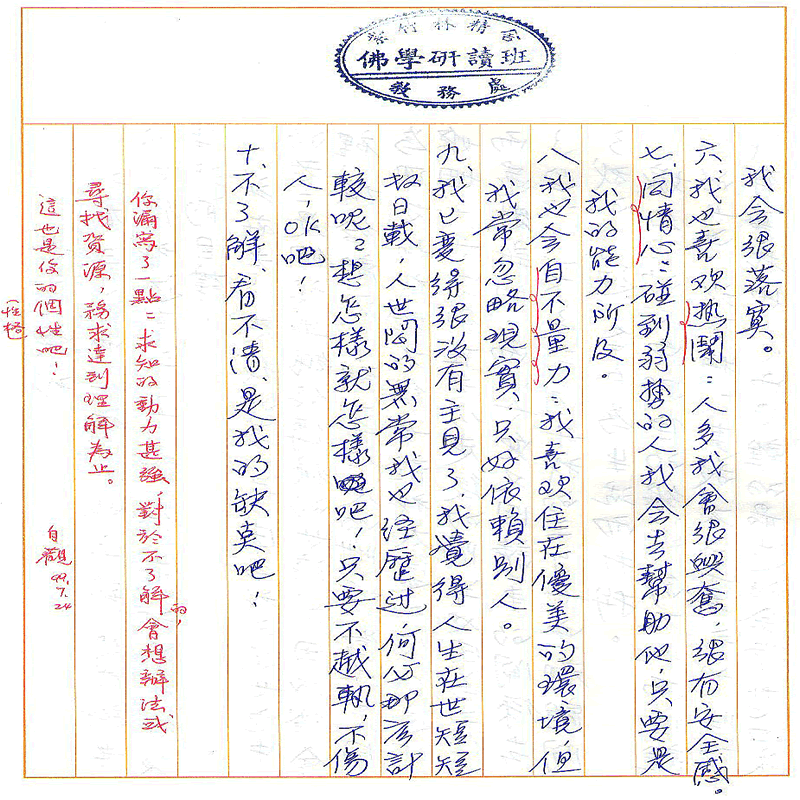 紫竹林精舍
佛學研讀班
教務處
我会很落寞。
六、我也喜欢热鬧：人多我會很興奮，很有安全感。
七、同情心：碰到弱勢的人我会去幫助他，只要是
我的能力所及。
八、我也会自不量力：我喜欢住在優美的環境，但
我常忽略現實，只好依賴別人。
九、我已變得很没有主見了，我覺得人生在世短短
数日載，人世间的無常我也经歷过，何必那広計
較呢？想怎樣就怎樣吧！只要不越軌，不傷
人，OK吧！
十、不了解、看不清、是我的缺真吧！
你漏寫了一點：求知的動力甚強，對於不了解的，會想辦法或
尋找資源，務求達到理解為止。
這也是你的個性吧！
（性格）
自觀 99.7.24